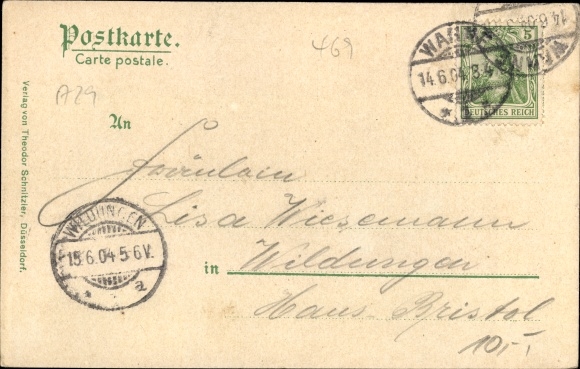 Postkarte.
Carte postale.
469
A29
An
Fräulein
Lisa Wiesemann
in Wildungen
Haus Bristol
10,-
Verlag von Theodor Schnitzler, Düsseldorf.
14.6.04
5
DEUTSCHES REICH
WILDUNGEN
15.6.04 5-6V.
a